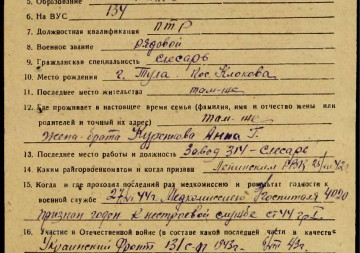 5. Образование
6. На ВУС 134
7. Должностная квалификация ПТР
8. Военное звание рядовой
9. Гражданская специальность слесарь
10. Место рождения г. Тула Кос.
11. Последнее место жительства там-же
12. Где проживает в настоящее время семья (фамилия, имя и отчество жены или
родителей и точный их адрес) там-же
жена-брата Анна Г.
13. Последнее место работы и должность Завод 314 - слесарь
14. Каким райгорвоенкоматом и когда призван Ленинским РВК
15. Когда и где проходил последний раз медкомиссию и результат годности к
военной службе 27/ 44г. Медкомиссией Госпиталя 4090
признан годен к нестроевой службе ст 44 гр I.
16. Участие в Отечественной войне (в составе какой последней части и в качестве
Украинский Фронт 131 с-п 1943г. 43г.